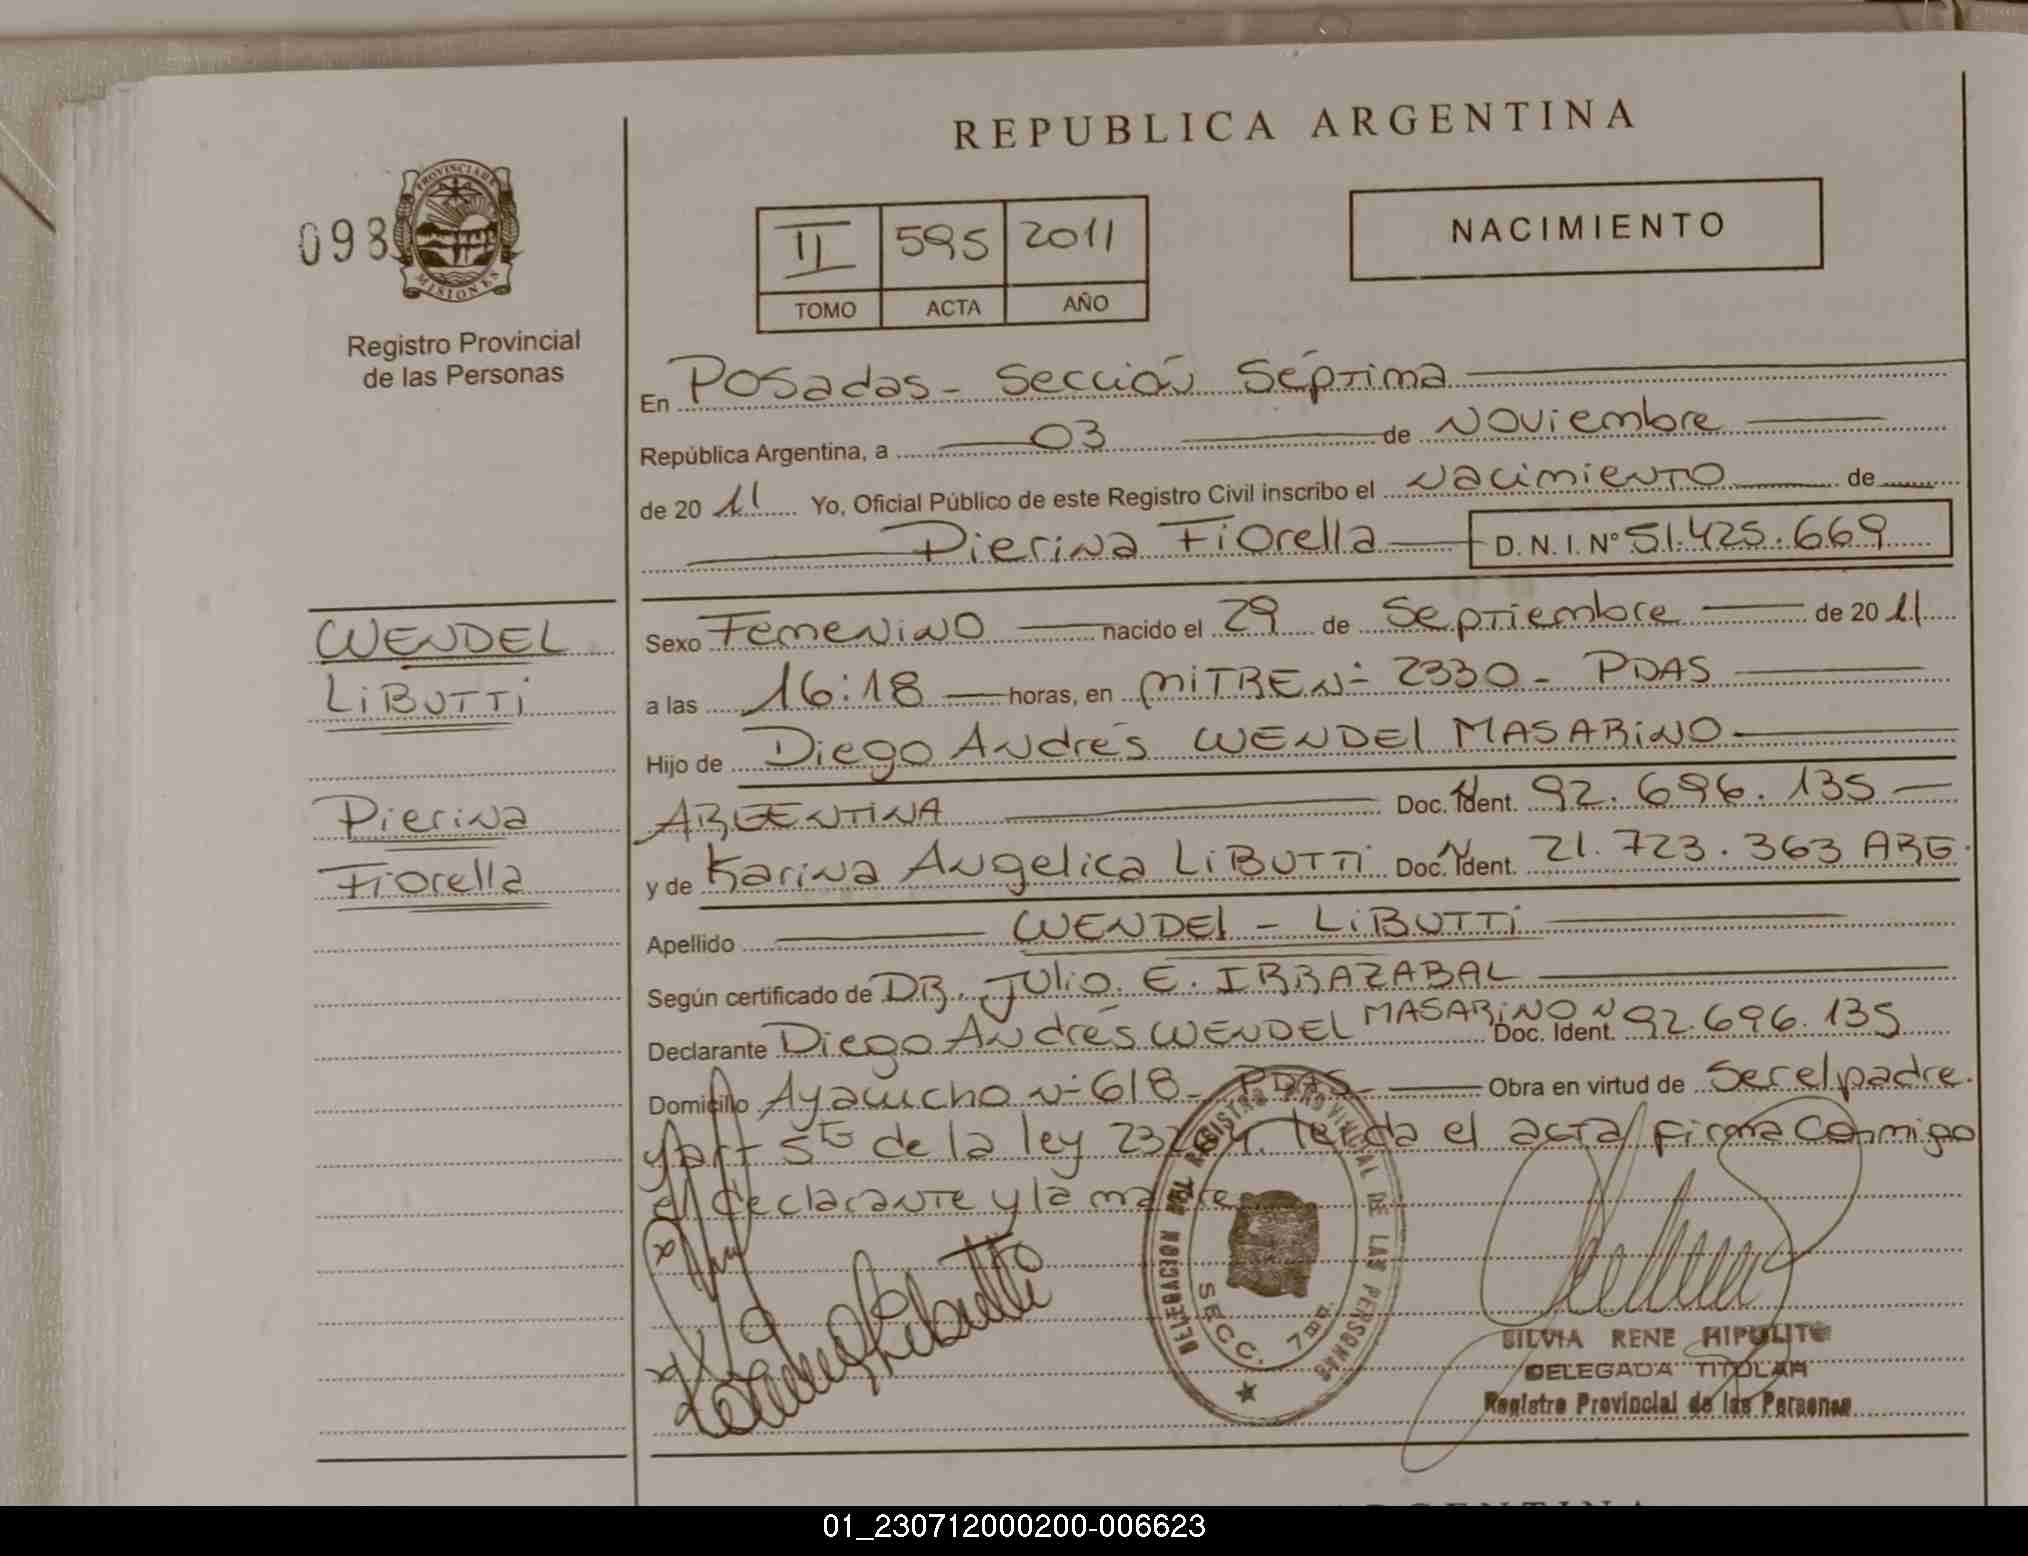 REPUBLICA ARGENTINA
098
PROVINCIA DE
MISIONES
Registro Provincial
de las Personas
II 595 2011
TOMO ACTA AÑO
NACIMIENTO
En Posadas - Sección Séptima
República Argentina, a 03 de Noviembre
de 20 11 Yo, Oficial Público de este Registro Civil inscribo el Nacimiento de
Pierina Fiorella D. N. I. Nº 51.425.669
WENDEL
LIBUTTI
Pierina
Fiorella
Sexo Femenino nacido el 29 de Septiembre de 20 11
a las 16:18 horas, en MITRE Nº 2330 - PDAS
Hijo de Diego Andrés WENDEL MASARINO
ARGENTINA Doc. Ident. 92.696.135
y de Karina Angelica LIBUTTI Doc. Ident. 21.723.363 ARG.
Apellido WENDEL - LIBUTTI
Según certificado de DR. JULIO. E. IRRAZABAL
Declarante Diego Andrés WENDEL MASARINO Doc. Ident. 92.696.135
Domicilio Ayacucho Nº 618 - PDAS Obra en virtud de Ser el padre.
y art 5to de la ley leída el acta firma Conmigo
el declarante y la madre
DELEGACION DEL REGISTRO PROVINCIAL DE LAS PERSONAS
SECC. 7ma
SILVIA RENE HIPOLITO
DELEGADA TITULAR
Registro Provincial de las Personas
ARGENTINA
01_230712000200-006623